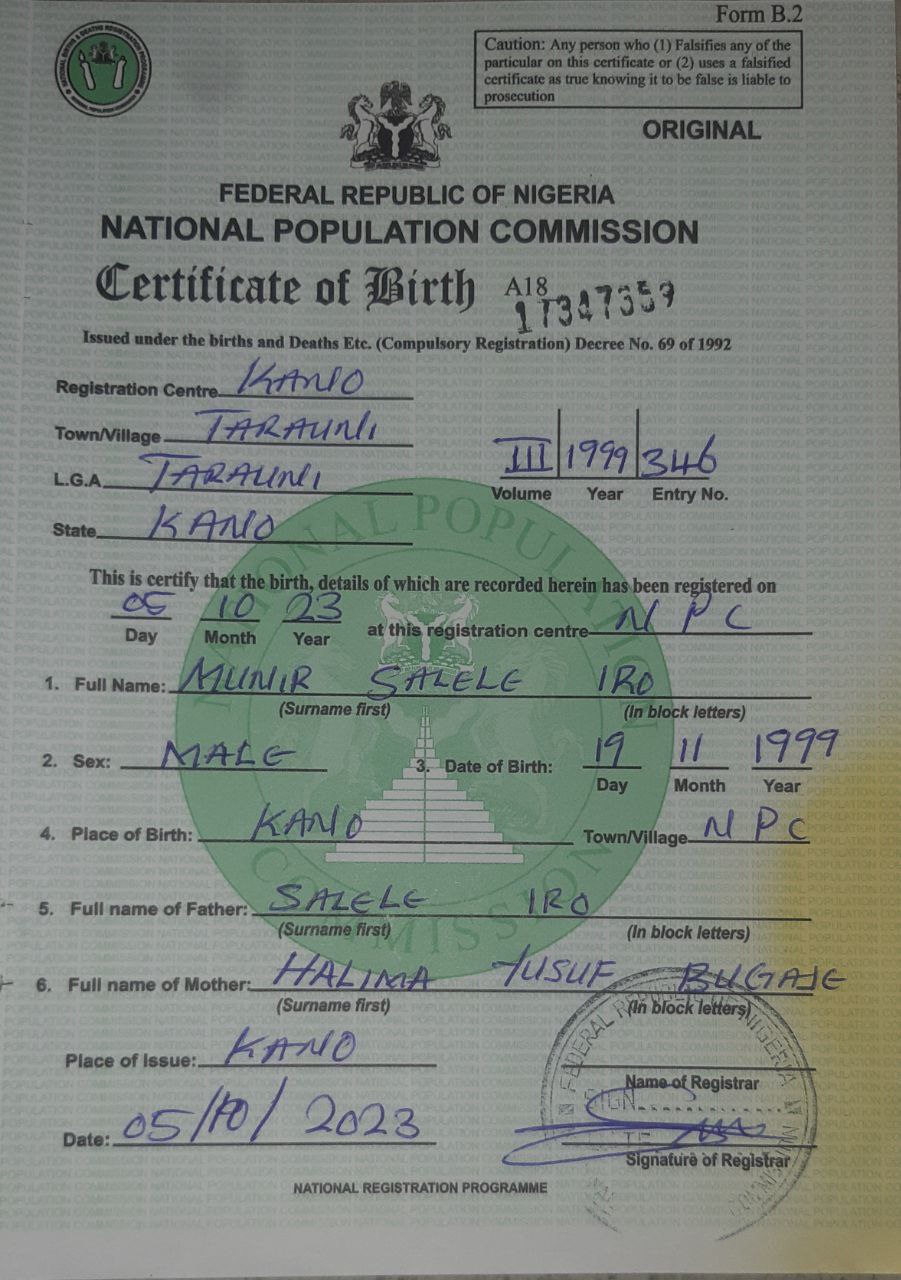 Form B.2
Caution: Any person who (1) Falsifies any of the
particular on this certificate or (2) uses a falsified
certificate as true knowing it to be false is liable to
prosecution
ORIGINAL
FEDERAL REPUBLIC OF NIGERIA
NATIONAL POPULATION COMMISSION
Certificate of Birth A18
17347359
Issued under the births and Deaths Etc. (Compulsory Registration) Decree No. 69 of 1992
Registration Centre KANO
Town/Village TARAUNI
L.G.A TARAUNI
III 1999 346
Volume Year Entry No.
State KANO
NATIONAL POPULATION COMMISSION
This is certify that the birth, details of which are recorded herein has been registered on
05 10 23
Day Month Year at this registration centre N P C
1. Full Name: MUNIR SALELE IRO
(Surname first) (In block letters)
2. Sex: MALE 3. Date of Birth: 19 11 1999
Day Month Year
4. Place of Birth: KANO Town/Village N P C
5. Full name of Father: SALELE IRO
(Surname first) (In block letters)
6. Full name of Mother: HALIMA YUSUF BUGAJE
(Surname first) (In block letters)
Place of Issue: KANO
FEDERAL REPUBLIC OF NIGERIA
Name of Registrar
SIGN
Date: 05/10/2023
Signature of Registrar
NATIONAL REGISTRATION PROGRAMME